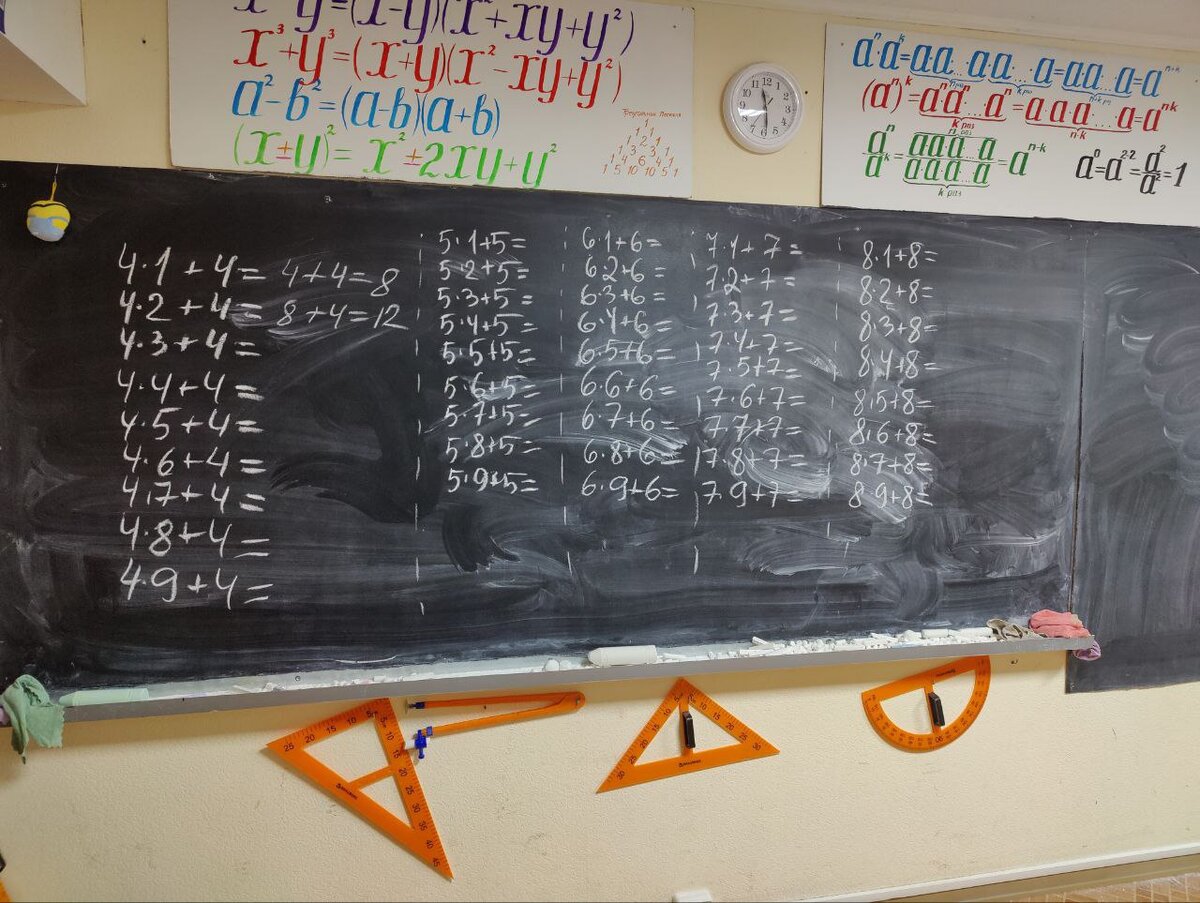 x³-y³=(x-y)(x²+xy+y²)
x³+y³=(x+y)(x²-xy+y²)
a²-b²=(a-b)(a+b)
(x±y)²= x²±2xy+y²
Треугольник Паскаля
1
1 1
1 2 1
1 3 3 1
1 4 6 4 1
1 5 10 10 5 1
(aⁿ)ᵏ=aⁿaⁿ...aⁿ=a·a·a·...·a=aⁿᵏ
k раз
n·k
k раз
12
1
2
3
4
5
6
7
8
9
10
11
4·1+4= 4+4=8
4·2+4= 8+4=12
4·3+4=
4·4+4=
4·5+4=
4·6+4=
4·7+4=
4·8+4=
4·9+4=
5·1+5=
5·2+5=
5·3+5=
5·4+5=
5·5+5=
5·6+5=
5·7+5=
5·8+5=
5·9+5=
6·1+6=
6·2+6=
6·3+6=
6·4+6=
6·5+6=
6·6+6=
6·7+6=
6·8+6=
6·9+6=
7·1+7=
7·2+7=
7·3+7=
7·4+7=
7·5+7=
7·6+7=
7·7+7=
7·8+7=
7·9+7=
8·1+8=
8·2+8=
8·3+8=
8·4+8=
8·5+8=
8·6+8=
8·7+8=
8·9+8=